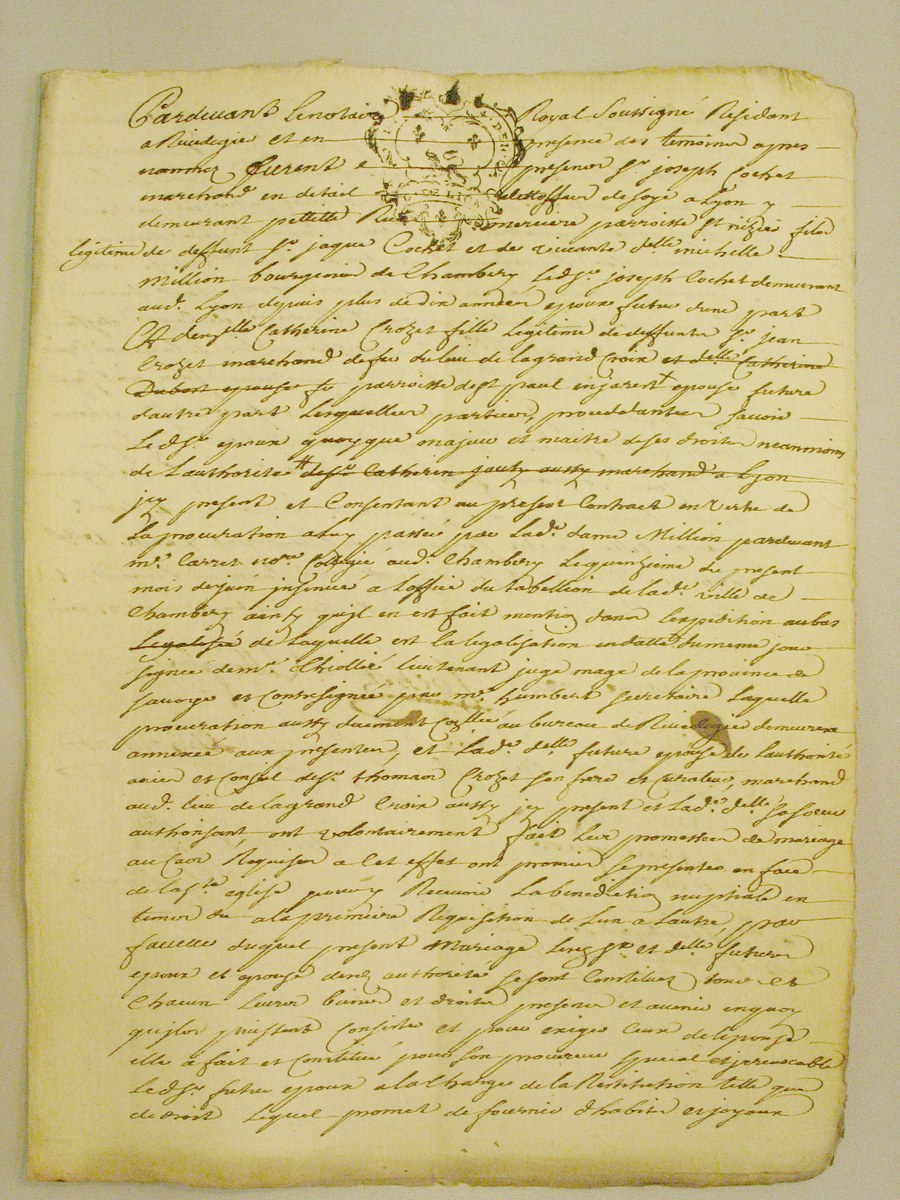 Pardevant Le notaire Royal Soussigné Résidant
a Rivedegie et en presence des temoins apres
nommez furent presens Sr. joseph Cochet
marchand en detail detoffes de soye a Lyon y
demeurant pettitte Rue merciere parroisse St nizié fils
legitime de deffunt Sr. jaque Cochet et de vivante delle. michelle
Million bourgeois de Chambery Ledt Sr. joseph Cochet demeurant
aud. Lyon depuis plus de dix années epoux futur dune part
Et demlle. Catherine Crozet fille Legitime de deffunts Sr. jean
Crozet marchand du lieu de la grand Croix et delle. Catherine
Dubost epouse parroisse de St paul en jarest epouse future
dautre part Lesquelles parties, procedantes savoir
Led Sr. epoux quoyque majeur et maitre de ses droits neanmoins
de Lauthorité de Sr. Catherin jouty aussy marchand a Lyon
jcy present et Consentant au present Contract en vertu de
La procuration a luy passée par Lade. dame Million pardevant
me. Carret nore. Collegié aud. Chambery Le quinzieme du present
mois de juin insinuée a Loffice du tabellion de lade. ville de
Chambery ainsy quil en est fait mention dans Lexpedition au bas
de Laquelle est la legalisation en datte du meme jour
signée de mr. Lieutenant juge mage de la province de
savoye et Contresignée par mr. humbert secretaire Laquelle
procuration aussy duement Collée au bureau de Rivedegie demeurera
annexée aux presentes, et Lade. delle. future epouse de Lauthorité
avis et Conseil de Sr. thomas Crozet son frere et Curateur, marchand
aud. lieu de la grand Croix aussy jcy present et Lade. delle. sa soeur
authorisant ont volontairement fait Les promesses de mariage
au Cas Requises a Cet effet ont promis se presenter en face
de la Ste. eglise pour y Recevoir La benediction nuptiale en
a la premiere Requisition de Lun a Lautre, par
faveur duquel present Mariage Lesd Sr. et delle. futurs
epoux et epouse authorité se sont Constitués tous et
Chacun Leurs biens et droits presens et avenir en quoy
quils puissent Consister et pour exiger Ceux de lepouse
elle a fait et Constitué pour son procureur special et irrevocable
Led Sr. futur epoux a la Charge de la Restitution telle que
de droit Lequel promet de fournir dhabits et joyaux